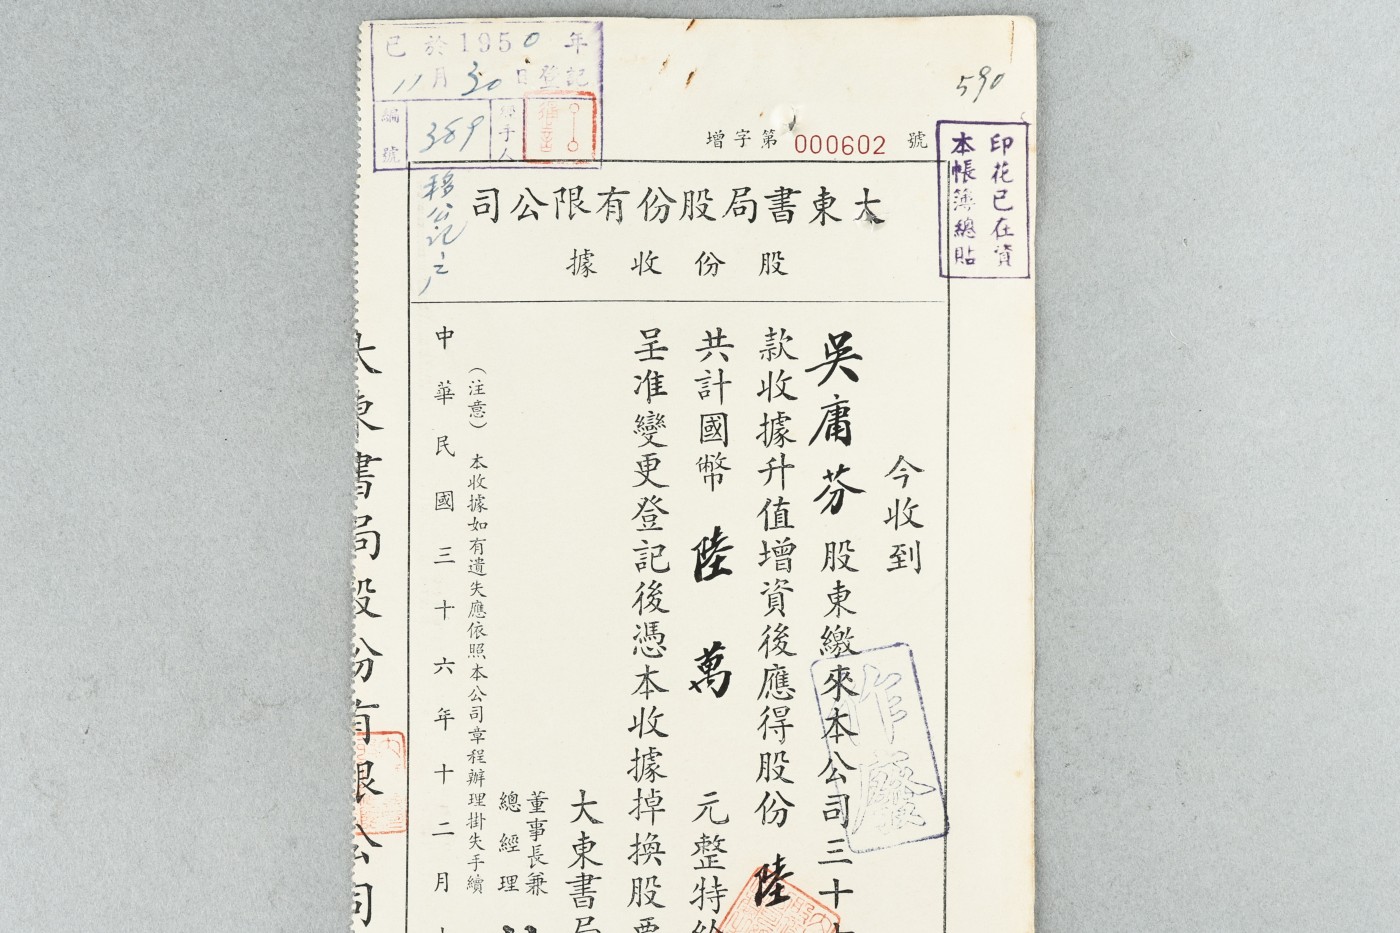 已於1950年
11月30日登記
編號
389
經手人
移公記户
590
增字第000602號
印花已在資
本帳簿總貼
大東書局股份有限公司
股份收據
今收到
吳庸芬股東繳來本公司三十
款收據升值增資後應得股份 陸
共計國幣 陸 萬 元整特給
呈准變更登記後憑本收據掉換股票
大東書局
董事長兼
總經理
(注意) 本收據如有遺失應依照本公司章程辦理掛失手續
中華民國三十六年十二月
作廢
大東書局股份有限公司